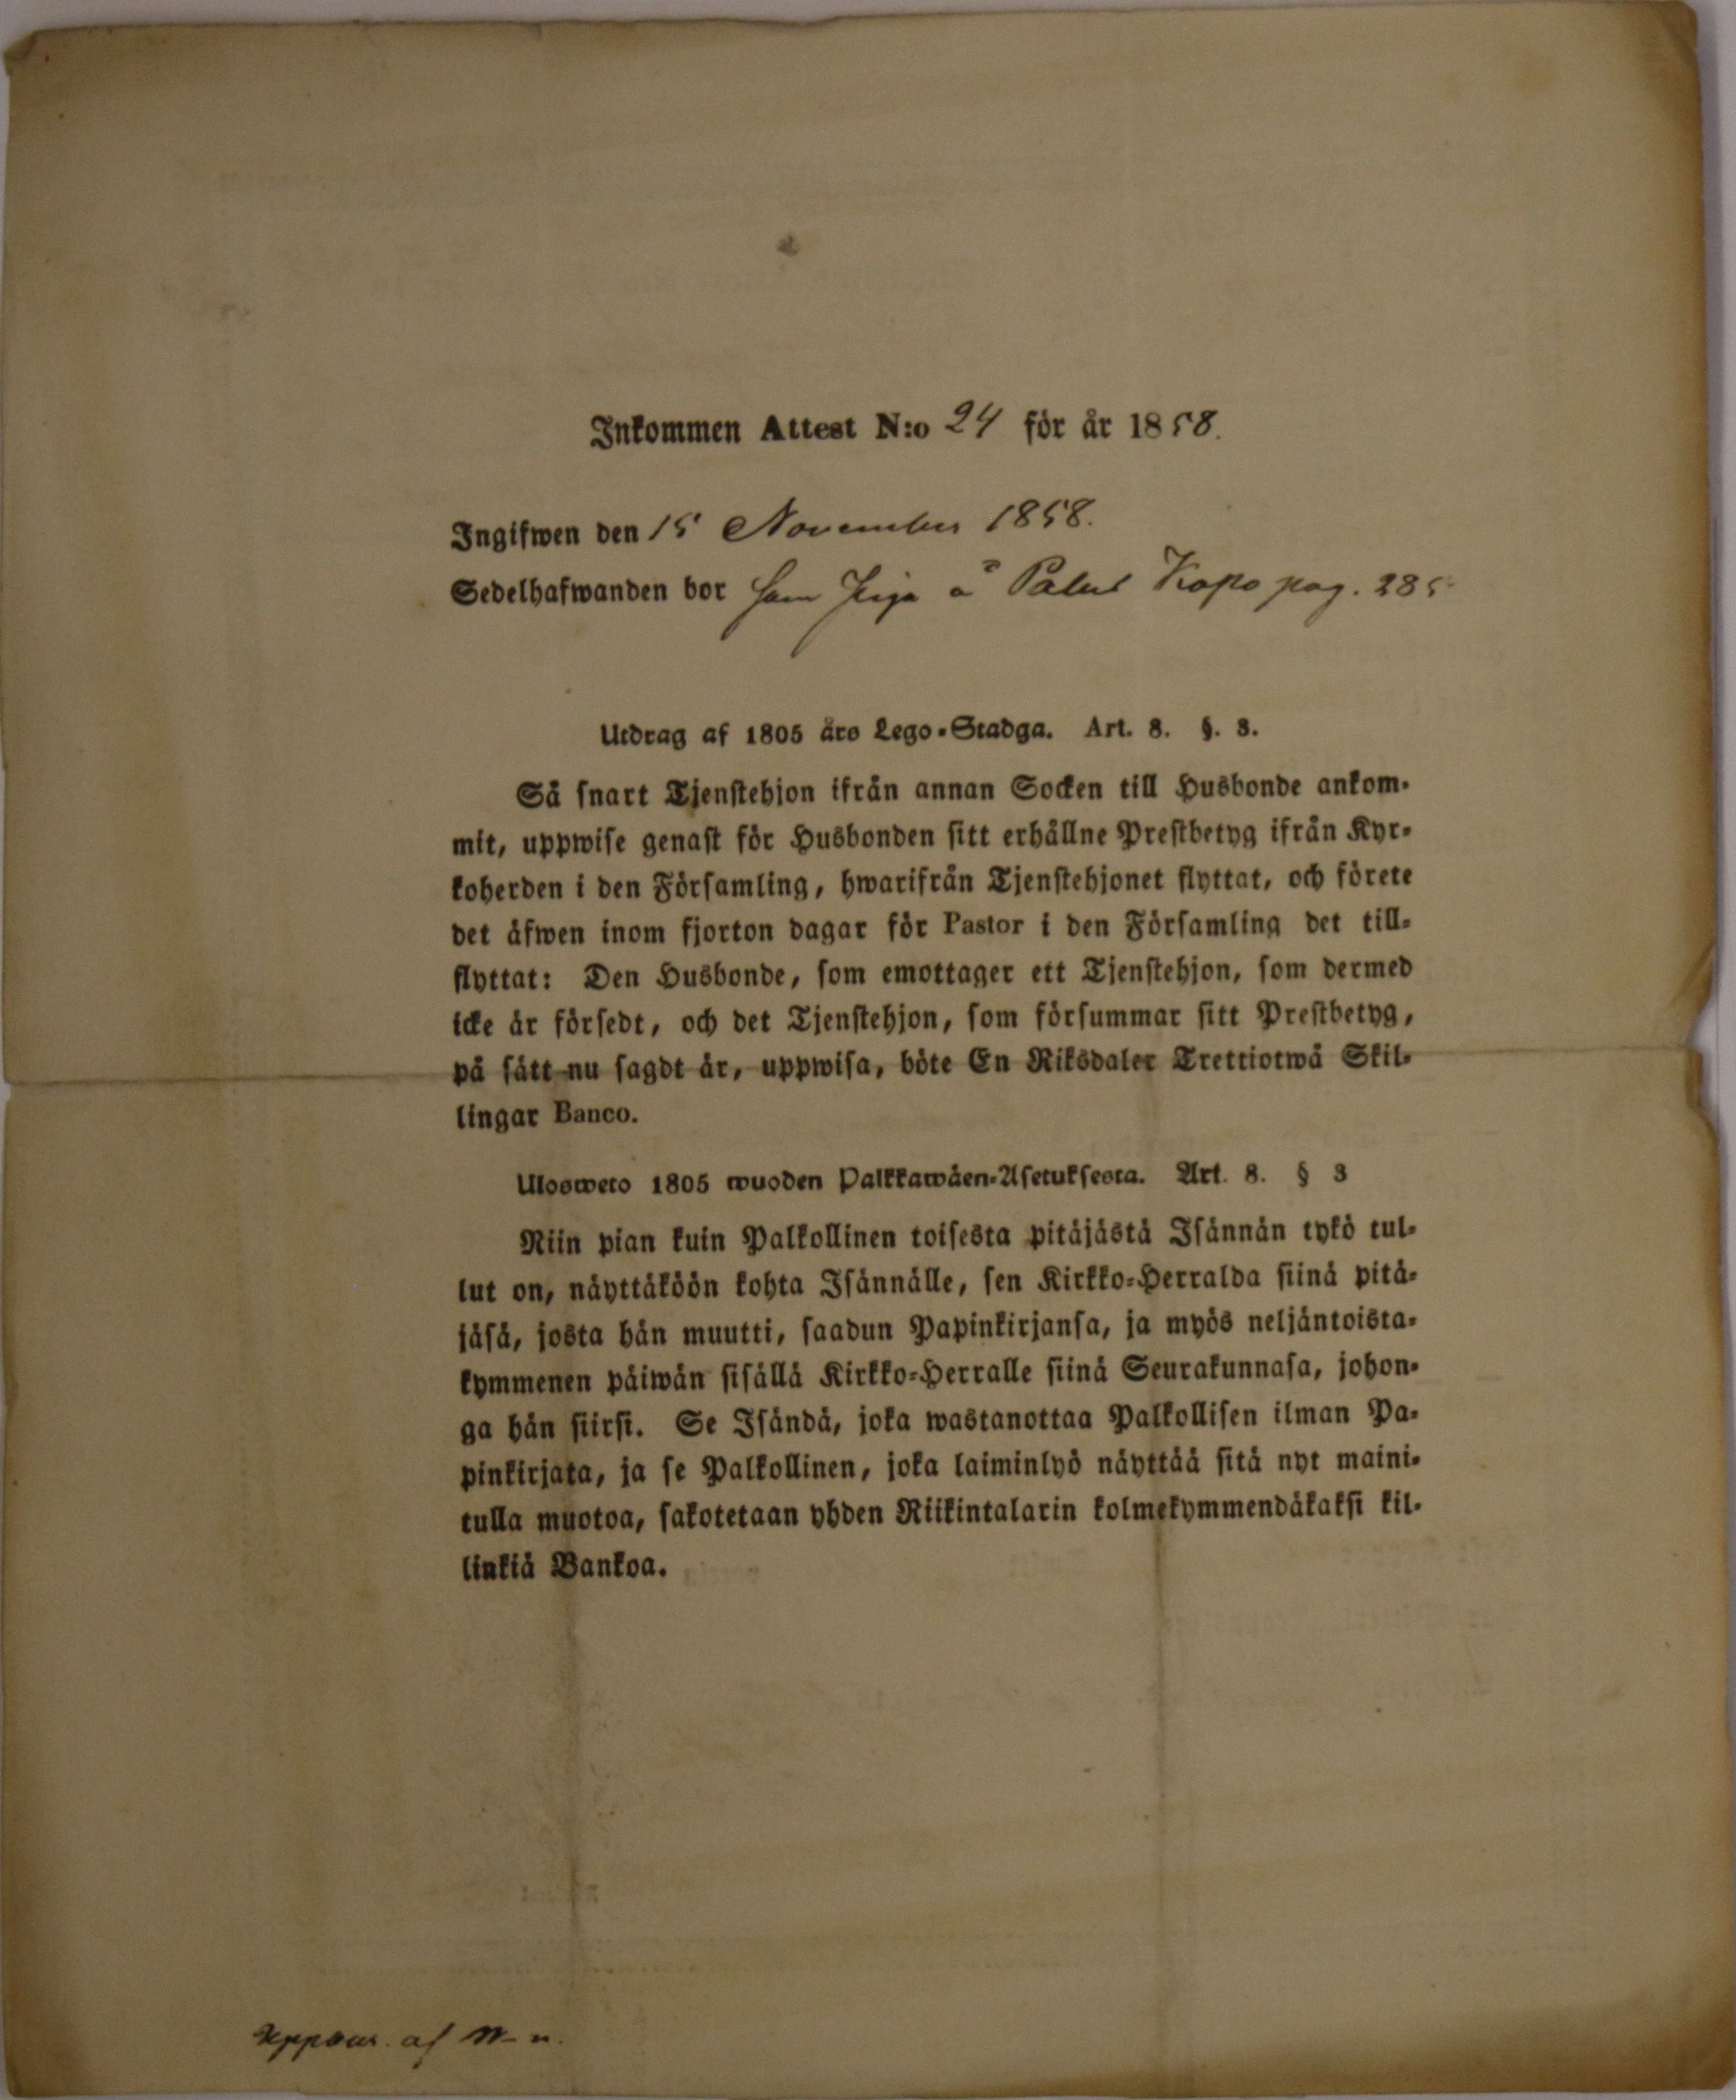 Inkommen Attest N:o 24 för år 1858.
Ingifwen den 15 November 1858.
Sedelhafwanden bor som Piga å Palus Kapo pag. 285
Utdrag af 1805 års Lego-Stadga. Art. 8. §. 3.
Så snart Tjenstehjon ifrån annan Socken till Husbonde ankom-
mit, uppwise genast för Husbonden sitt erhållne Prestbetyg ifrån Kyr-
koherden i den Församling, hwarifrån Tjenstehjonet flyttat, och förete
det äfwen inom fjorton dagar för Pastor i den Församling det till-
flyttat: Den Husbonde, som emottager ett Tjenstehjon, som dermed
icke är försedt, och det Tjenstehjon, som försummar sitt Prestbetyg,
på sätt nu sagdt är, uppwisa, böte En Riksdaler Trettiotwå Skil-
lingar Banco.
Ulosweto 1805 wuoden Palkkawäen-Asetuksesta. Art. 8. § 3
Niin pian kuin Palkollinen toisesta pitäjästä Isännän tykö tul-
lut on, näyttäköön kohta Isännälle, sen Kirkko-Herralda siinä pitä-
jäsä, josta hän muutti, saadun Papinkirjansa, ja myös neljäntoista-
kymmenen päiwän sisällä Kirkko-Herralle siinä Seurakunnasa, johon-
ga hän siirsi. Se Isändä, joka wastanottaa Palkollisen ilman Pa-
pinkirjata, ja se Palkollinen, joka laiminlyö näyttää sitä nyt maini-
tulla muotoa, sakotetaan yhden Riikintalarin kolmekymmendäkaksi kil-
linkiä Bankoa.
af